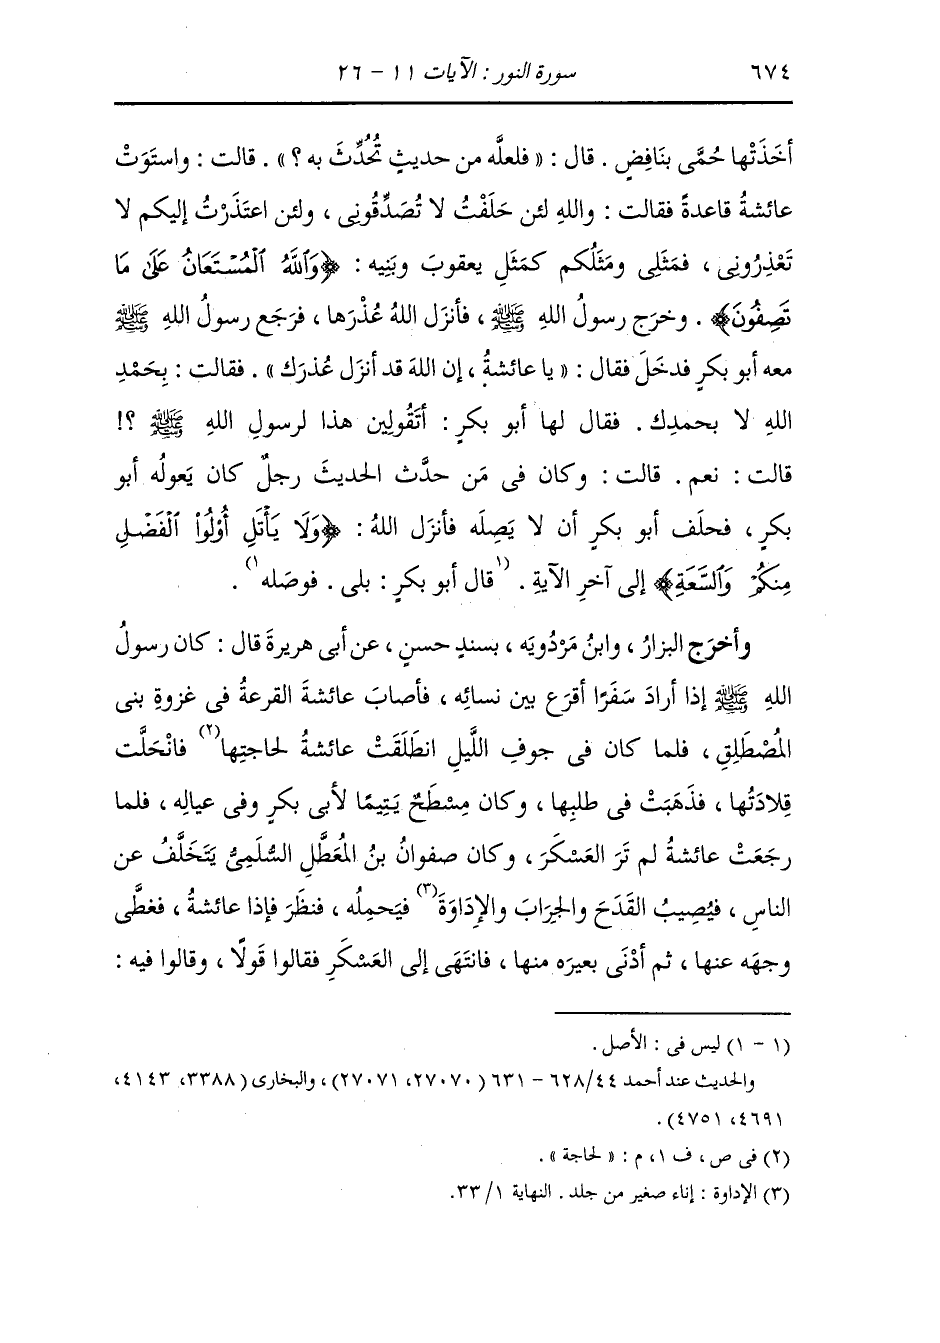 ٦٧٤ سورة النور : الآيات ١١ - ٢٦
أخَذَتْها حُمَّى بنَافِضٍ . قال : « فلعلَّه من حديثٍ تُحُدِّثَ به ؟ » . قالت : واستَوَتْ
عائشةُ قاعدةً فقالت : واللهِ لئن حَلَفْتُ لا تُصَدِّقُونِى ، ولئن اعتَذَرْتُ إليكم لا
تَعْذِرُونِى ، فمَثَلِى ومَثَلُكم كمَثَلِ يعقوبَ وبَنِيه : ﴿وَٱللَّهُ ٱلْمُسْتَعَانُ عَلَىٰ مَا
تَصِفُونَ﴾ . وخرَج رسولُ اللهِ ﷺ ، فأنزَل اللهُ عُذْرَها ، فرَجَع رسولُ اللهِ ﷺ
معه أبو بكرٍ فدخَلَ فقال : « يا عائشةُ ، إن اللهَ قد أنزَل عُذرَك » . فقالت : بِحَمْدِ
اللهِ لا بحمدِك . فقال لها أبو بكرٍ : أتَقُولِين هذا لرسولِ اللهِ ﷺ ؟!
قالت : نعم . قالت : وكان فى مَن حدَّث الحديثَ رجلٌ كان يَعولُه أبو
بكرٍ ، فحلَف أبو بكرٍ أن لا يَصِلَه فأنزَل اللهُ : ﴿وَلَا يَأْتَلِ أُوْلُواْ ٱلْفَضْلِ
مِنكُمْ وَٱلسَّعَةِ﴾ إلى آخرِ الآيةِ . (١قال أبو بكرٍ : بلى . فوصَله١) .
وأخرَج البزارُ ، وابنُ مَرْدُويَه ، بسندٍ حسنٍ ، عن أبى هريرةَ قال : كان رسولُ
اللهِ ﷺ إذا أرادَ سَفَرًا أقرَع بين نسائِه ، فأصابَ عائشةَ القرعةُ فى غزوةِ بنى
المُصْطَلِقِ ، فلما كان فى جوفِ اللَّيلِ انطَلَقَتْ عائشةُ لحاجتِها(٢) فانْحَلَّت
قِلادَتُها ، فذَهَبَتْ فى طلبِها ، وكان مِسْطَحٌ يَتِيمًا لأبى بكرٍ وفى عيالِه ، فلما
رجَعَتْ عائشةُ لم تَرَ العَسْكَرَ ، وكان صفوانُ بنُ المُعَطَّلِ السُّلَمِىُّ يَتَخَلَّفُ عن
الناسِ ، فيُصِيبُ القَدَحَ والجِرَابَ والإِدَاوَةَ(٣) فيَحمِلُه ، فنظَرَ فإذا عائشةُ ، فغطَّى
وجهَه عنها ، ثم أدْنَى بعيرَه منها ، فانتَهَى إلى العَسْكَرِ فقالوا قَولًا ، وقالوا فيه :
(١ - ١) ليس فى : الأصل .
والحديث عند أحمد ٤٤/ ٦٢٨ - ٦٣١ (٢٧٠٧٠، ٢٧٠٧١) ، والبخارى (٣٣٨٨، ٤١٤٣،
٤٦٩١، ٤٧٥١) .
(٢) فى ص ، ف ١، م : « لحاجة » .
(٣) الإداوة : إناء صغير من جلد . النهاية ١/ ٣٣.